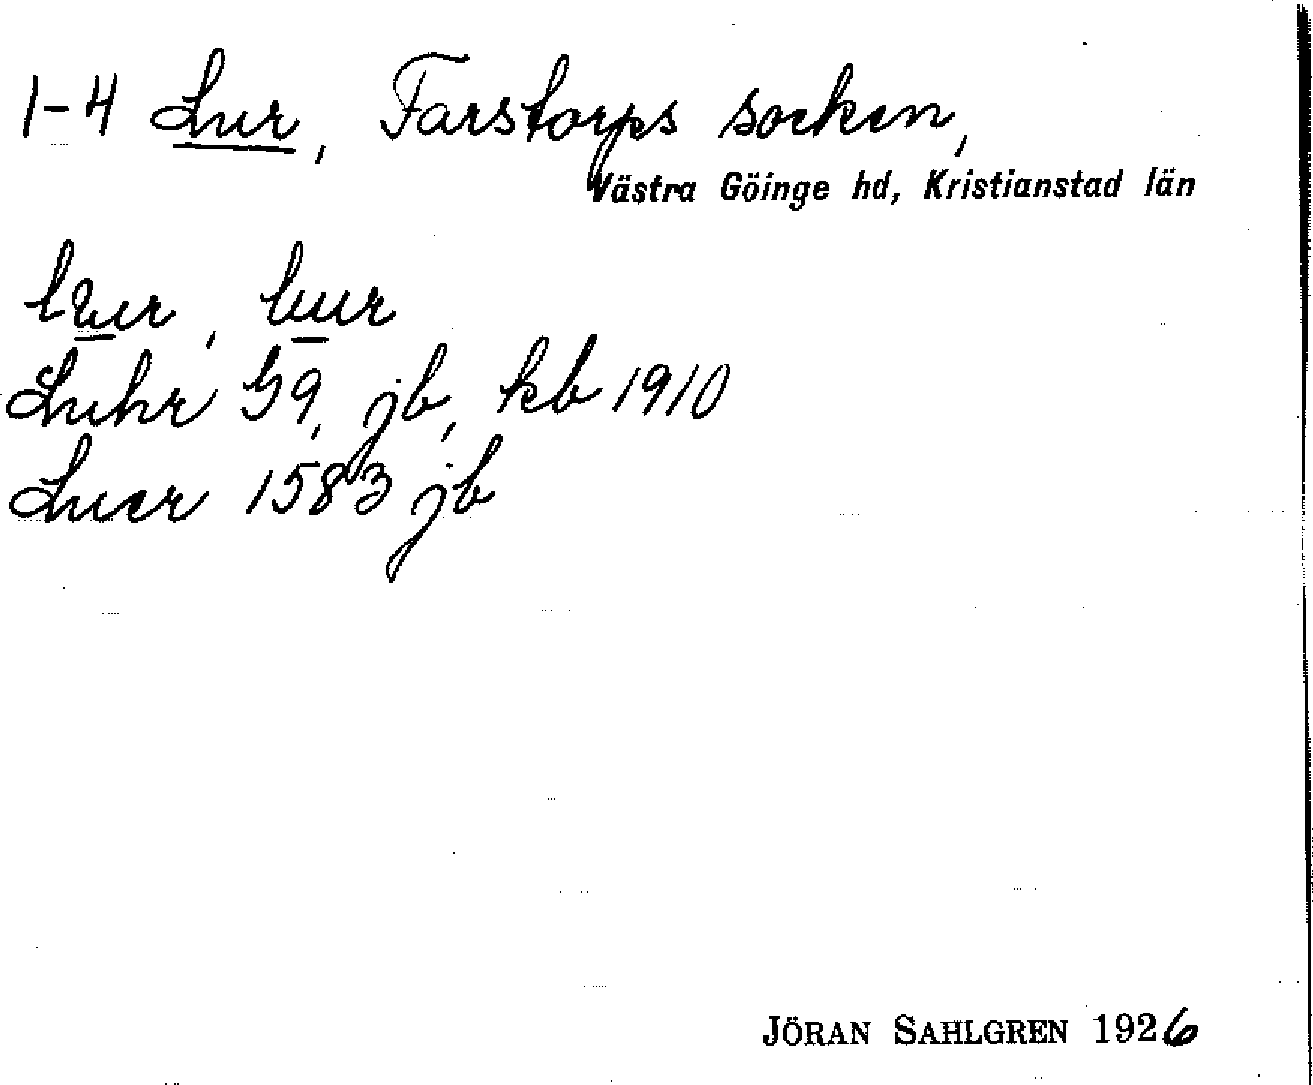 1-4 Lur, Farstorps socken,
Västra Göinge hd, Kristianstad län
luur
Luhr G9, jb, kb 1910
Luer 1583 jb
JÖRAN SAHLGREN 1926